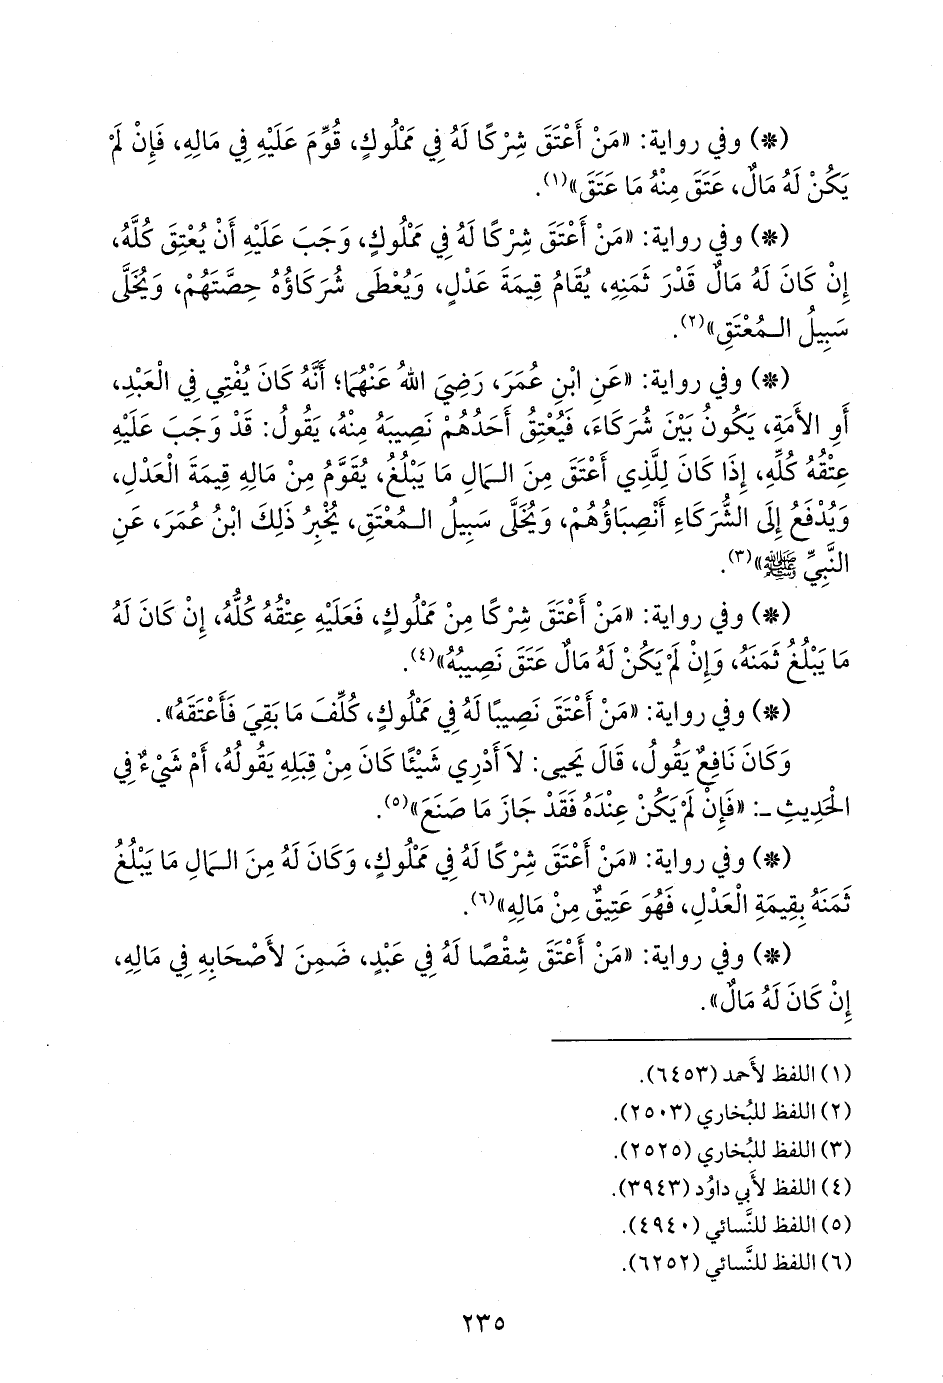 (*) وفي رواية: «مَنْ أَعْتَقَ شِرْكًا لَهُ فِي مَمْلُوكٍ، قُوِّمَ عَلَيْهِ فِي مَالِهِ، فَإِنْ لَمْ
يَكُنْ لَهُ مَالٌ، عَتَقَ مِنْهُ مَا عَتَقَ»(١).
(*) وفي رواية: «مَنْ أَعْتَقَ شِرْكًا لَهُ فِي مَمْلُوكٍ، وَجَبَ عَلَيْهِ أَنْ يُعْتِقَ كُلَّهُ،
إِنْ كَانَ لَهُ مَالٌ قَدْرَ ثَمَنِهِ، يُقَامُ قِيمَةَ عَدْلٍ، وَيُعْطَى شُرَكَاؤُهُ حِصَّتَهُمْ، وَيُخَلَّى
سَبِيلُ الْمُعْتَقِ»(٢).
(*) وفي رواية: «عَنِ ابْنِ عُمَرَ، رَضِيَ اللهُ عَنْهُمَا؛ أَنَّهُ كَانَ يُفْتِي فِي الْعَبْدِ،
أَوِ الأَمَةِ، يَكُونُ بَيْنَ شُرَكَاءَ، فَيُعْتِقُ أَحَدُهُمْ نَصِيبَهُ مِنْهُ، يَقُولُ: قَدْ وَجَبَ عَلَيْهِ
عِتْقُهُ كُلِّهِ، إِذَا كَانَ لِلَّذِي أَعْتَقَ مِنَ الْمَالِ مَا يَبْلُغُ، يُقَوَّمُ مِنْ مَالِهِ قِيمَةَ الْعَدْلِ،
وَيُدْفَعُ إِلَى الشُّرَكَاءِ أَنْصِبَاؤُهُمْ، وَيُخَلَّى سَبِيلُ الْمُعْتَقِ، يُخْبِرُ ذَلِكَ ابْنُ عُمَرَ، عَنِ
النَّبِيِّ ﷺ»(٣).
(*) وفي رواية: «مَنْ أَعْتَقَ شِرْكًا مِنْ مَمْلُوكٍ، فَعَلَيْهِ عِتْقُهُ كُلُّهُ، إِنْ كَانَ لَهُ
مَا يَبْلُغُ ثَمَنَهُ، وَإِنْ لَمْ يَكُنْ لَهُ مَالٌ عَتَقَ نَصِيبُهُ»(٤).
(*) وفي رواية: «مَنْ أَعْتَقَ نَصِيبًا لَهُ فِي مَمْلُوكٍ، كُلِّفَ مَا بَقِيَ فَأَعْتَقَهُ».
وَكَانَ نَافِعٌ يَقُولُ، قَالَ يَحيى: لاَ أَدْرِي شَيْئًا كَانَ مِنْ قِبَلِهِ يَقُولُهُ، أَمْ شَيْءٌ فِي
الْحَدِيثِ ـ: «فَإِنْ لَمْ يَكُنْ عِنْدَهُ فَقَدْ جَازَ مَا صَنَعَ»(٥).
(*) وفي رواية: «مَنْ أَعْتَقَ شِرْكًا لَهُ فِي مَمْلُوكٍ، وَكَانَ لَهُ مِنَ الْمَالِ مَا يَبْلُغُ
ثَمَنَهُ بِقِيمَةِ الْعَدْلِ، فَهُوَ عَتِيقٌ مِنْ مَالِهِ»(٦).
(*) وفي رواية: «مَنْ أَعْتَقَ شِقْصًا لَهُ فِي عَبْدٍ، ضَمِنَ لأَصْحَابِهِ فِي مَالِهِ،
إِنْ كَانَ لَهُ مَالٌ».
(١) اللفظ لأَحمد (٦٤٥٣).
(٢) اللفظ للبُخاري (٢٥٠٣).
(٣) اللفظ للبُخاري (٢٥٢٥).
(٤) اللفظ لأَبي داوُد (٣٩٤٣).
(٥) اللفظ للنَّسائي (٤٩٤٠).
(٦) اللفظ للنَّسائي (٦٢٥٢).
٢٣٥